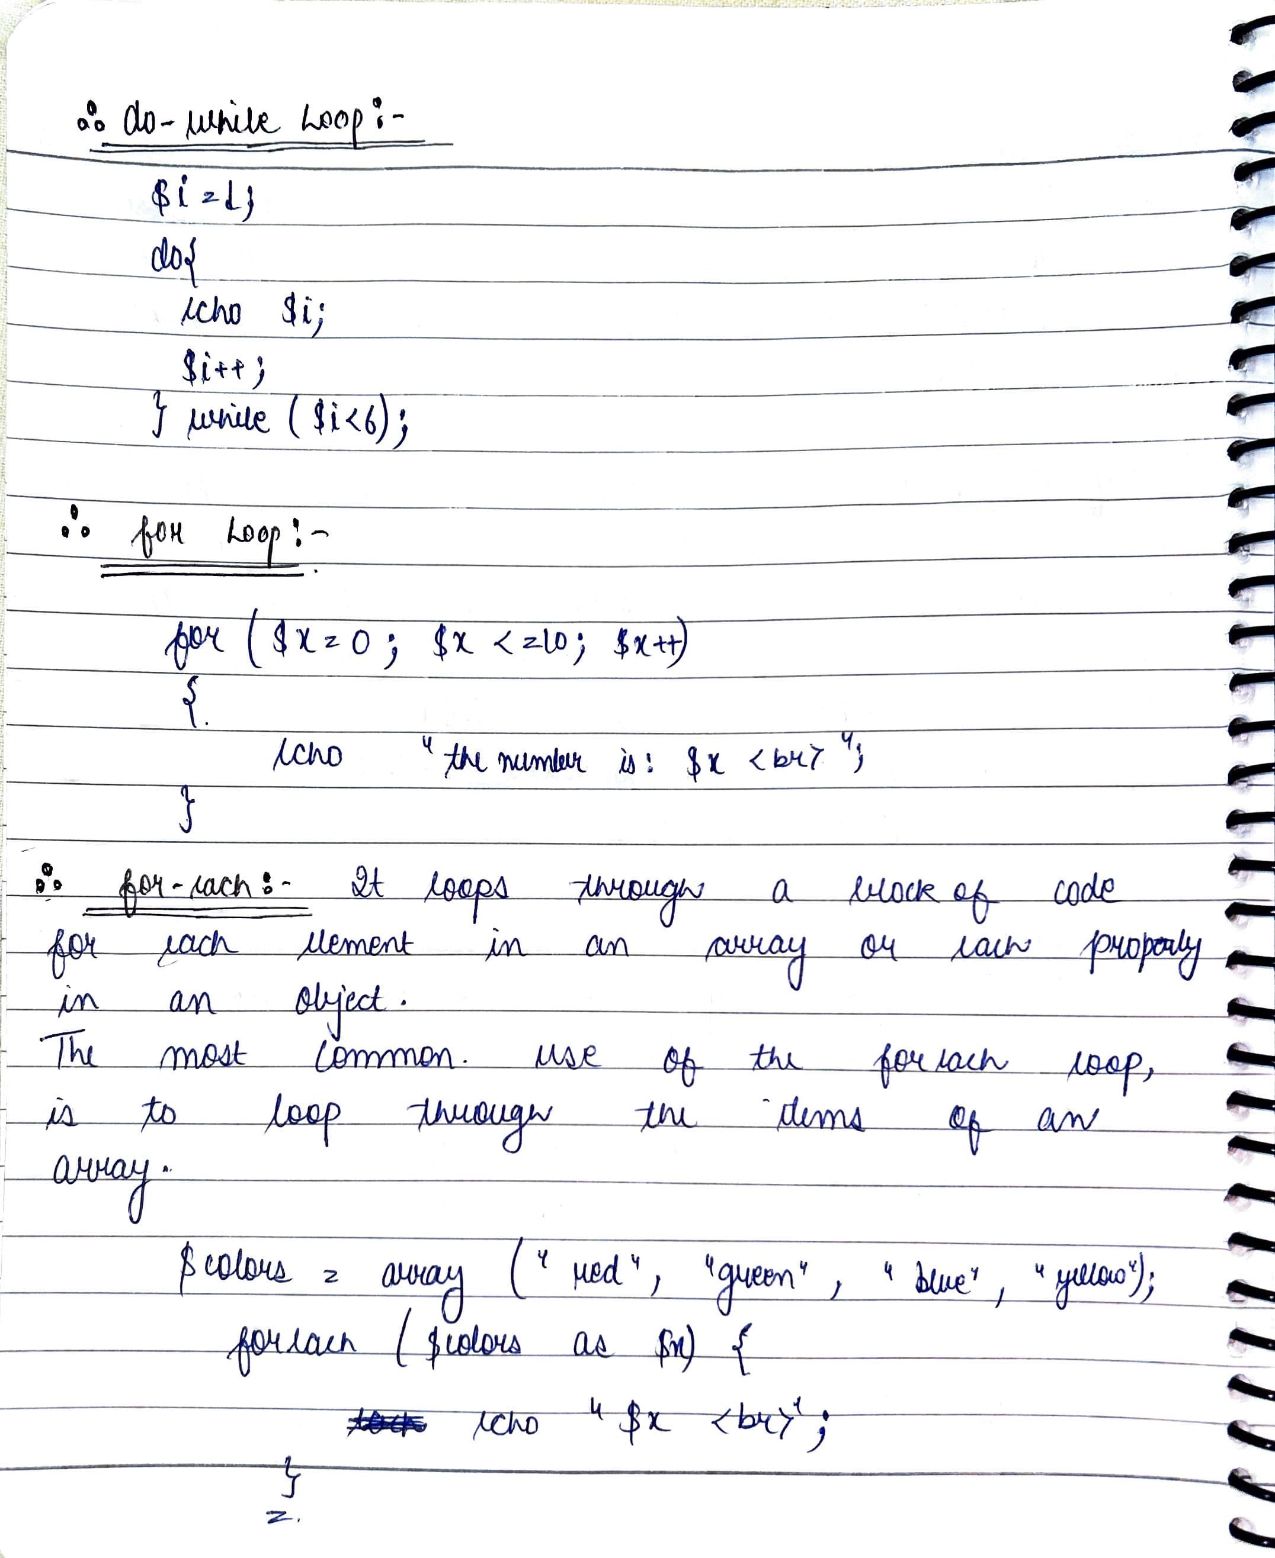 ∴ do-while Loop:-
$i=1;
do{
echo $i;
$i++;
} while ($i<6);
∴ for Loop:-
for ($x=0; $x <=10; $x++)
{
echo "the number is: $x <br>";
}
∴ for-each:- It loops through a block of code
for each element in an array or each property
in an object.
The most common use of the foreach loop,
is to loop through the items of an
array.
$colors = array ("red", "green", "blue", "yellow");
foreach ($colors as $x) {
echo "$x <br>";
}